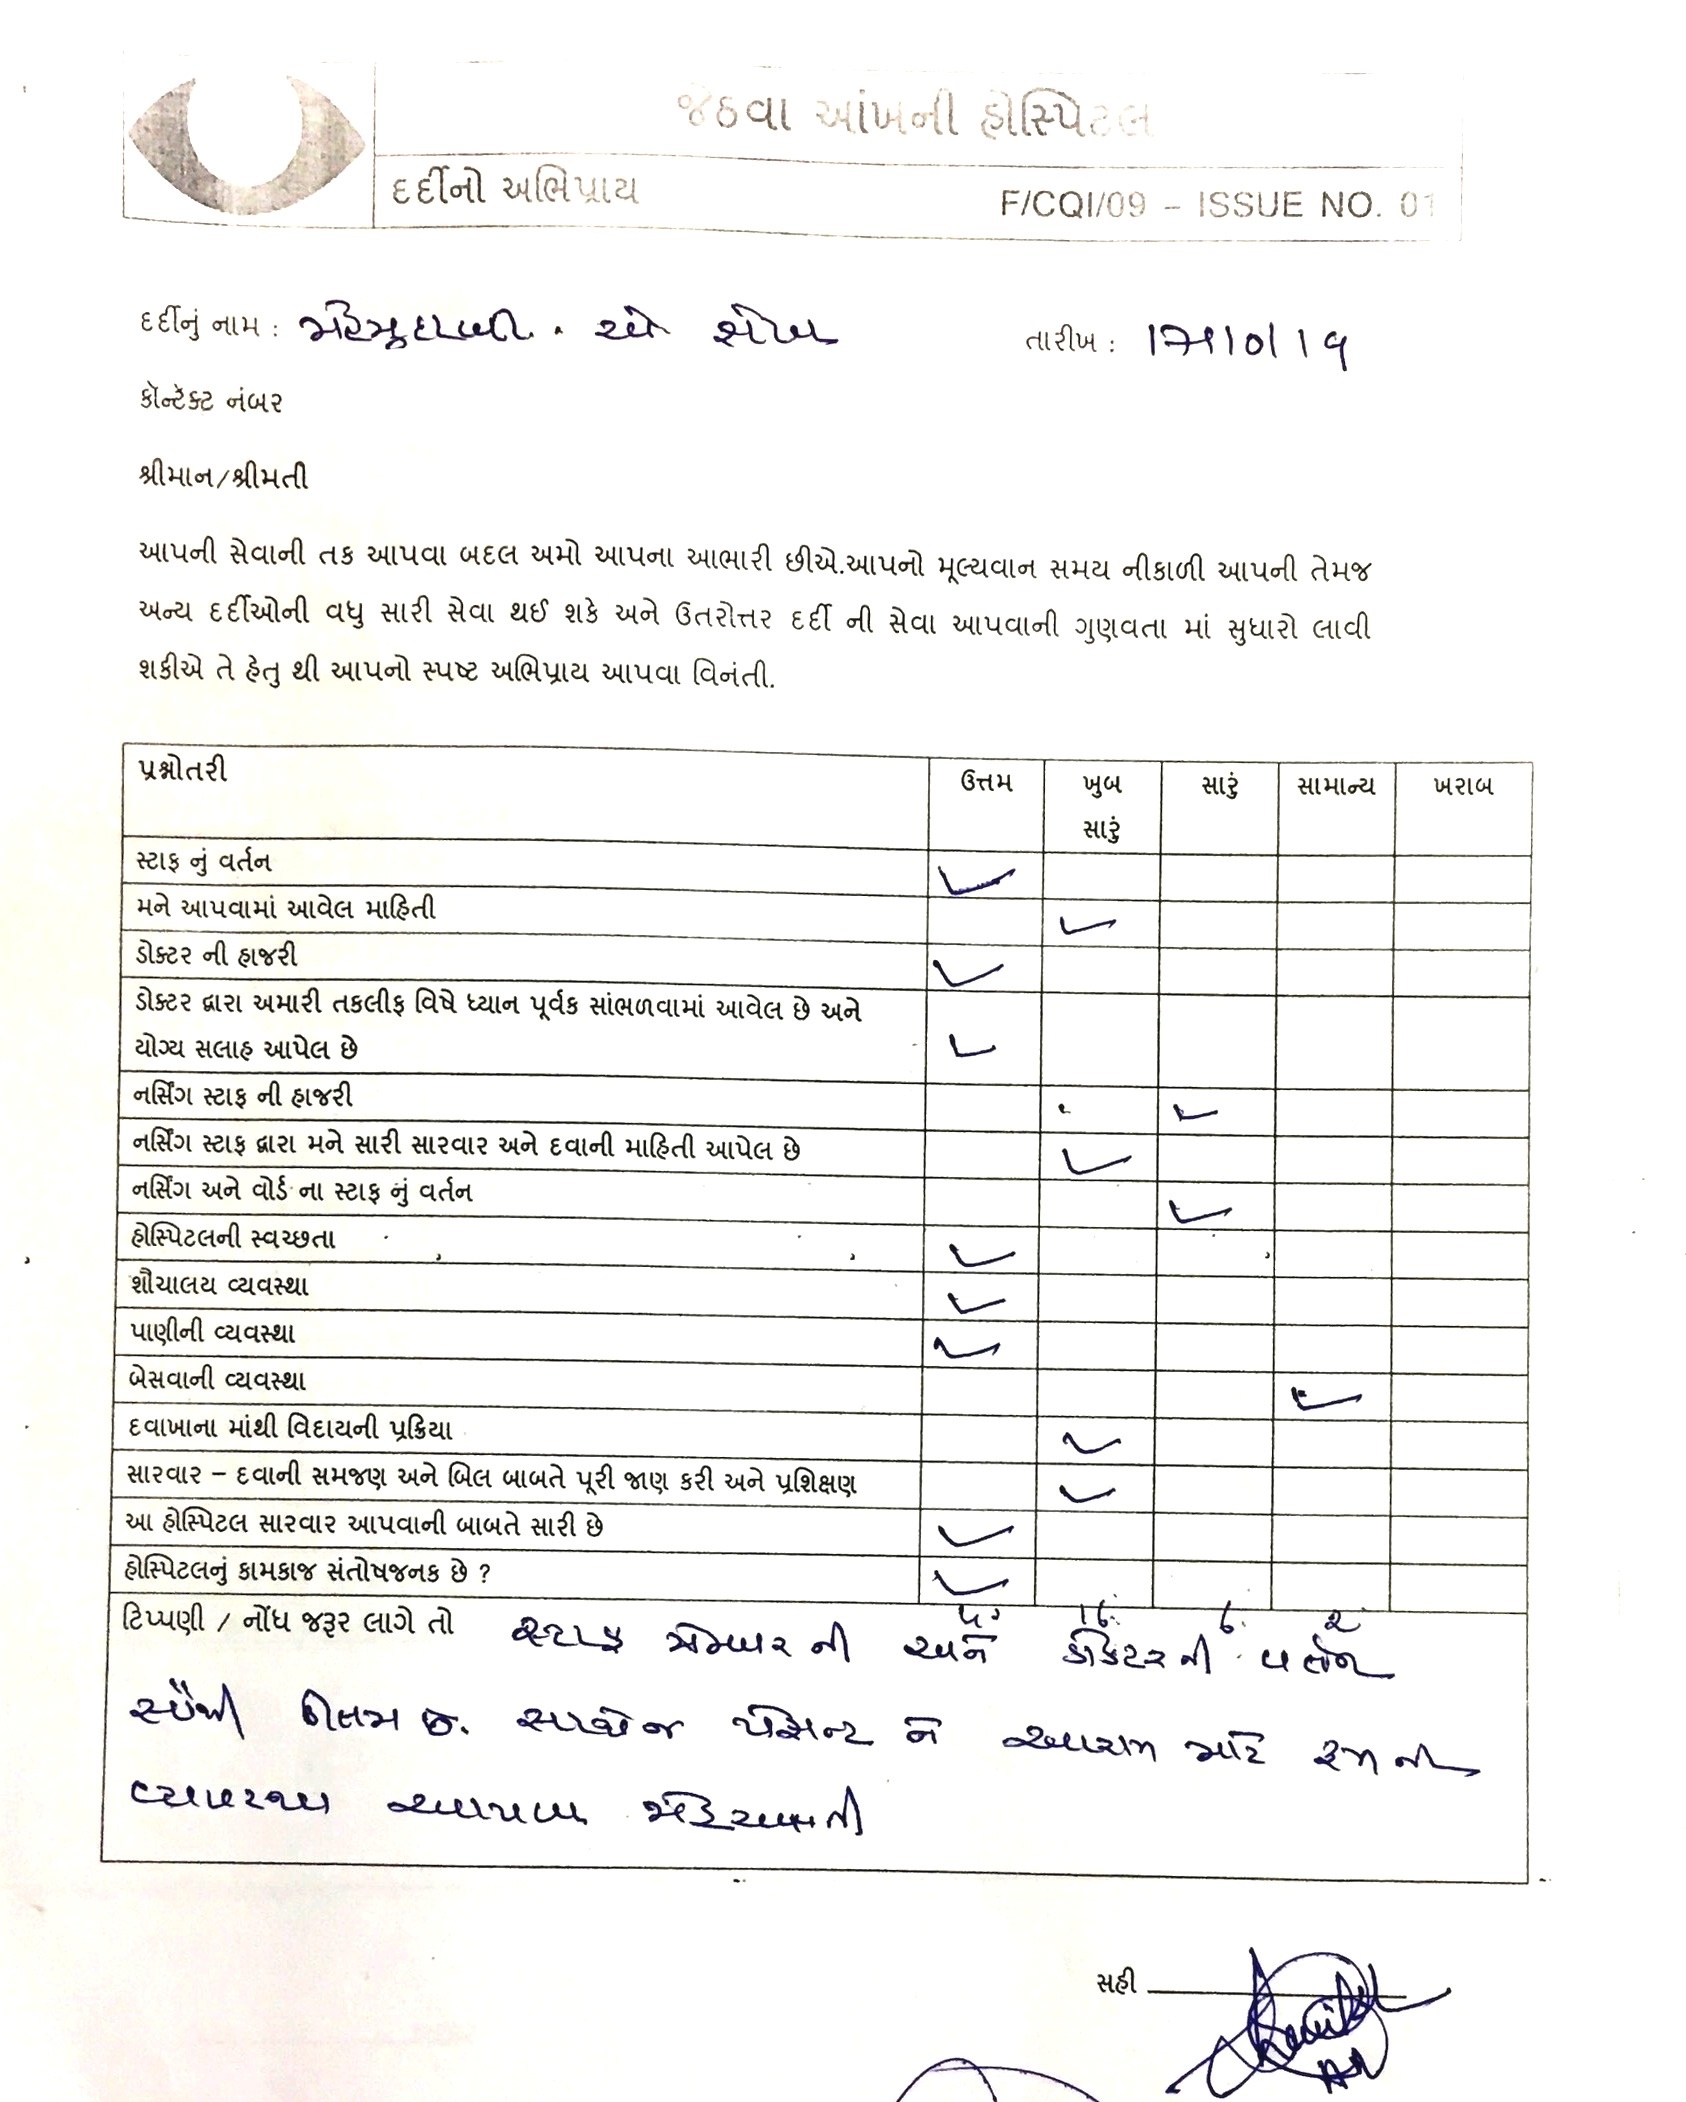 જેઠવા આંખની હોસ્પિટલ
દર્દીનો અભિપ્રાય F/CQI/09 – ISSUE NO. 01
દર્દીનું નામ : શેખ તારીખ :
કૉન્ટેક્ટ નંબર
શ્રીમાન/શ્રીમતી
આપની સેવાની તક આપવા બદલ અમો આપના આભારી છીએ.આપનો મૂલ્યવાન સમય નીકાળી આપની તેમજ
અન્ય દર્દીઓની વધુ સારી સેવા થઈ શકે અને ઉતરોત્તર દર્દી ની સેવા આપવાની ગુણવતા માં સુધારો લાવી
શકીએ તે હેતુ થી આપનો સ્પષ્ટ અભિપ્રાય આપવા વિનંતી.
પ્રશ્નોતરી ઉત્તમ ખુબ સારું સારું સામાન્ય ખરાબ
સ્ટાફ નું વર્તન
મને આપવામાં આવેલ માહિતી
ડોક્ટર ની હાજરી
ડોક્ટર દ્વારા અમારી તકલીફ વિષે ધ્યાન પૂર્વક સાંભળવામાં આવેલ છે અને
યોગ્ય સલાહ આપેલ છે
નર્સિંગ સ્ટાફ ની હાજરી
નર્સિંગ સ્ટાફ દ્વારા મને સારી સારવાર અને દવાની માહિતી આપેલ છે
નર્સિંગ અને વોર્ડ ના સ્ટાફ નું વર્તન
હોસ્પિટલની સ્વચ્છતા
શૌચાલય વ્યવસ્થા
પાણીની વ્યવસ્થા
બેસવાની વ્યવસ્થા
દવાખાના માંથી વિદાયની પ્રક્રિયા
સારવાર – દવાની સમજણ અને બિલ બાબતે પૂરી જાણ કરી અને પ્રશિક્ષણ
આ હોસ્પિટલ સારવાર આપવાની બાબતે સારી છે
હોસ્પિટલનું કામકાજ સંતોષજનક છે ?
ટિપ્પણી / નોંધ જરૂર લાગે તો સ્ટાફ મેમ્બર ની અને ડોકટર ની વર્તન
ઉત્તમ છે. સાથે જ પેસેન્ટ ને આરામ માટે રૂમ ની
વ્યવસ્થા આપવા
સહી